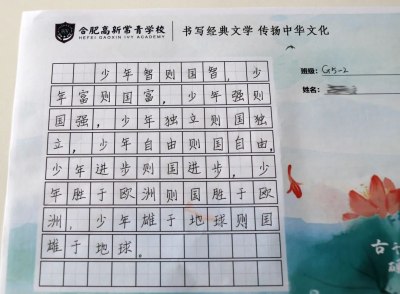 合肥高新常青学校
HEFEI GAOXIN IVY ACADEMY
书写经典文学 传扬中华文化
班级：G5-2
姓名：
少年智则国智，少
年富则国富，少年强则
国强，少年独立则国独
立，少年自由则国自由，
少年进步则国进步，少
年胜于欧洲则国胜于欧
洲，少年雄于地球则国
雄于地球。